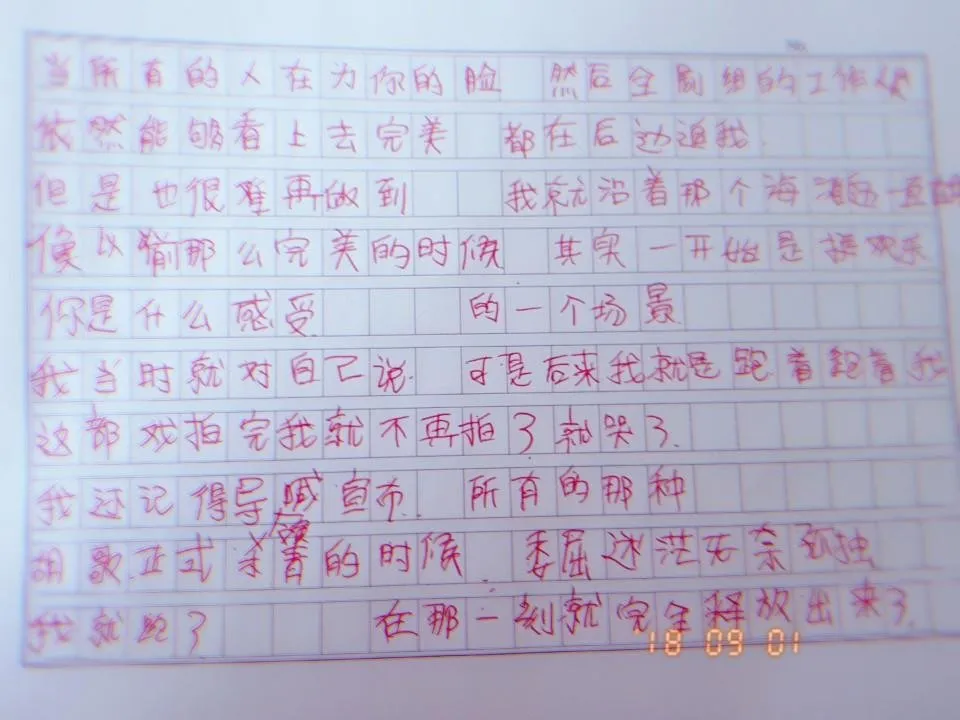 当所有的人在为你的脸 然后全剧组的工作人员
依然能够看上去完美 都在后边追我.
但是也很难再做到 我就沿着那个海滩边一直
像以前那么完美的时候 其实一开始是挺欢乐
你是什么感受 的一个场景
我当时就对自己说. 可是后来我就是跑着跑着我
这部戏拍完我就不再拍了就哭了.
我还记得导喊宣布. 所有的那种
胡歌正式杀青的时候. 委屈迷茫无奈孤独
我就跑了 在那一刻就完全释放出来了.
18 09 01